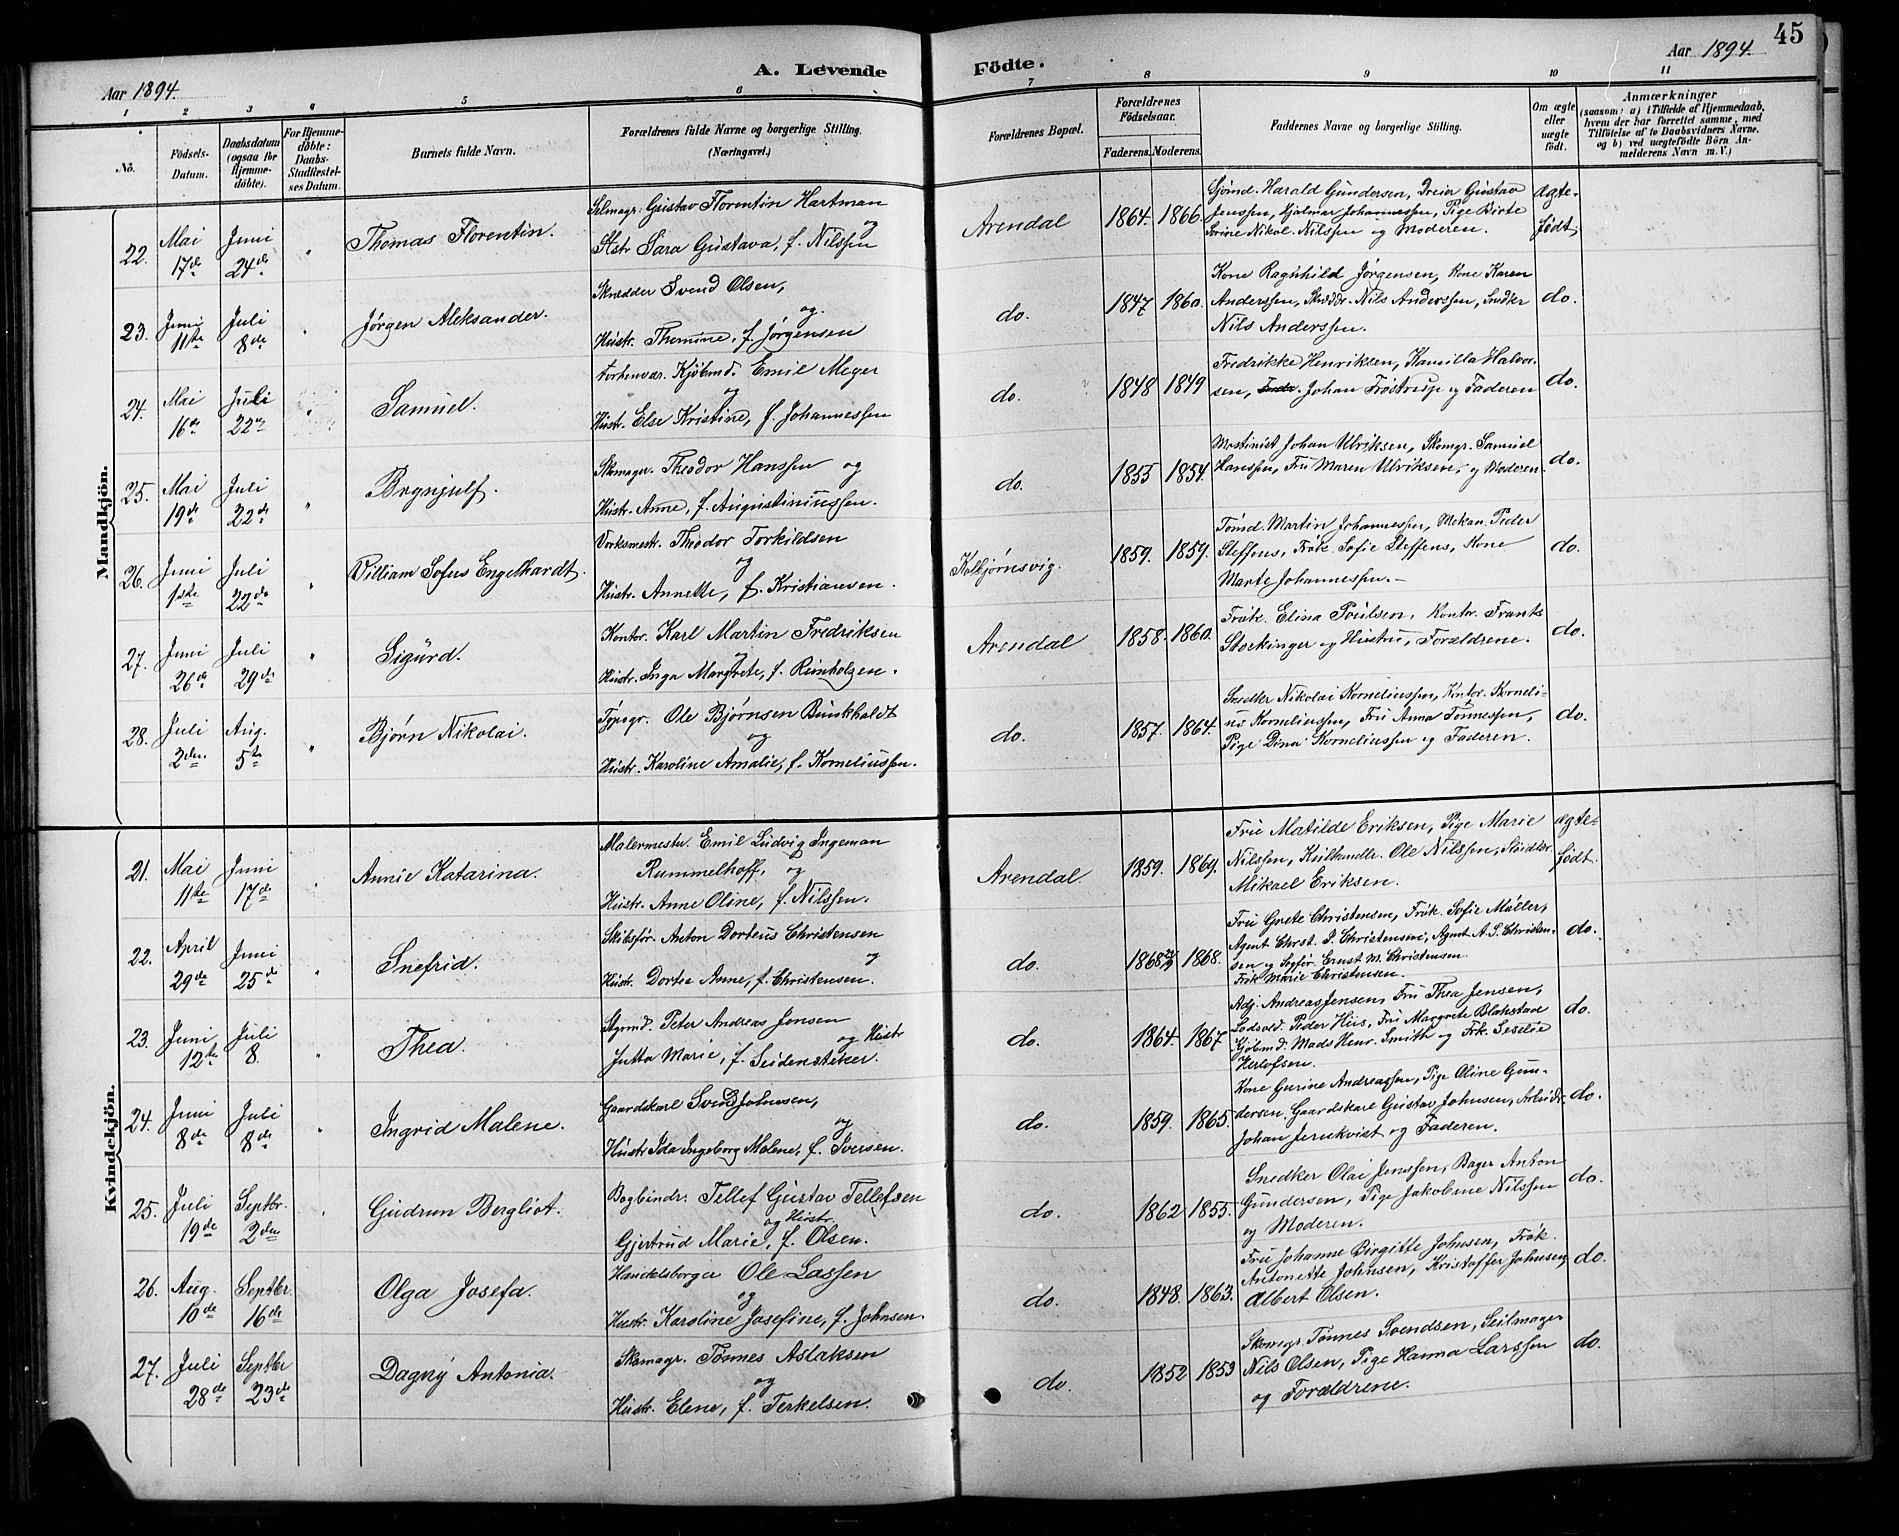 45
Aar 1894.
A. Levende
Födte.
Aar 1894.
1 2 3 4 5 6 7 8 9 10 11
No.
Födsels-Datum.
Daabsdatum (ogsaa for Hjemme-döbte).
For Hjemme-döbte: Daabs-Stadfæstel-ses Datum.
Barnets fulde Navn.
Forældrenes fulde Navne og borgerlige Stilling.
(Næringsvei.)
Forældrenes Bopæl.
Forældrenes Födselsaar.
Faderens. Moderens.
Faddernes Navne og borgerlige Stilling.
Om ægte eller uægte födt.
Anmærkninger
(saasom: a) i Tilfælde af Hjemmedaab, hvem der har forrettet samme, med Tilföielse af to Daabsvidners Navne, og b) ved uægtefödte Börn Anmelderens Navn m. V.)
Mandkjön.
22. Mai 17de Juni 24de " Thomas Florentin.
Selmagr. Gustav Florentin Hartman og
Hstr. Sara Gustava, f. Nilssen
Arendal 1864. 1866.
Sjömd. Harald Gundersen, Dreier Gustav
Jenssen, Hjalmar Johannessen, Pige Birte
Sorine Nikol. Nilssen og Moderen.
Ægte-födt,
23. Juni 11te Juli 8de " Jørgen Aleksander.
Skrædder Svend Olsen, og
Hustr. Themine, f. Jørgensen
do. 1847 1860.
Kone Ragnhild Jørgensen, Kone Karen
Anderssen, Skræddr. Nils Anderssen, Snedker
Nils Anderssen.
do.
24. Mai 16de Juli 22de " Samuel.
forhenvær. Kjöbmd. Emil Meyer og
Hustr. Else Kristine, f. Johannessen
do. 1848 1849
Fredrikke Henriksen, Kamilla Halvor-
sen, Johan Fröstrup og Faderen
do.
25. Mai 19de Juli 22de " Brynjulf.
Skomager. Theodor Hanssen og
Hustr. Anne, f. Augustinussen.
do. 1855 1854.
Maskinist Johan Ulriksen, Skomgr. Samuel
Hanssen, Fru Maren Ulriksen, og Moderen
do.
26. Juni 1ste Juli 22de " William Sofus Engelhardt.
Verksmestr. Theodor Torkildsen og
Hustr. Annette, f. Kristiansen.
Kolbjørnsvig. 1859. 1859.
Tömd. Martin Johannessen, Mekan. Peder
Steffens, Frök. Sofie Steffens, Kone
Marte Johannessen. —
do.
27. Juni 26de Juli 29de " Sigurd.
Kontor. Karl Martin Fredriksen og
Hustr. Inga Margrete, f. Reinholzen.
Arendal 1858. 1860.
Frök. Elina Poulsen, Kontor. Frants
Stockinger og Hustru, Forældrene.
do.
28. Juli 2den. Aug. 5te " Bjørn Nikolai.
Typogr. Ole Bjørnsen Bunkholdt og
Hustr. Karoline Amalie, f. Korneliussen.
do. 1857. 1864.
Snedker Nikolai Korneliussen, Kontor. Korneli-
us Korneliussen, Fru Anna Tönnessen,
Pige Dina Korneliussen og Faderen.
do.
Kvindekjön.
21. Mai 11te Juni 17de " Annie Katarina.
Malermester Emil Ludvig Ingeman
Rummelhoff, og
Hustr. Anne Oline, f. Nilssen.
Arendal. 1859. 1869.
Fru Matilde Eriksen, Pige Marie
Nilssen, Kulhandlr. Ole Nilssen,
Mikael Eriksen.
ægte-födt.
22. April 29de Juni 25de " Snefrid.
Skibsför. Anton Dorteus Christensen og
Hustr. Dortea Anne, f. Christensen.
do. 1868 1868.
Fru Grete Christensen, Frök. Sofie Müller,
Agent Chrst. S. Christensen, Agent A. S. Christen-
sen og Sogför. Ernst M. Christensen.
Frk Marie Christensen.
do.
23. Juni 12te Juli 8. " Thea.
Styrmd. Peter Andreas Jensen og Hustr
Jutta Marie, f. Seidensticker.
do. 1864. 1867
Adj. Andreas Jensen, Fru Thea Jensen,
Lodsold. Peder Hus, Fru Margrete Blakstad
Kjöbmd. Mads Henr. Smith og Frk. Seselie
Herlofsen.
do.
24. Juni 8de Juli 8de " Ingrid Malene.
Gaardskarl Svend Johnsen, og
Hustr Ida Ingeborg Malene, f. Iversen.
do. 1859. 1865.
Kone Gurine Andreassen, Pige Oline Gun-
dersen, Gaardskarl Gustav Johnsen, Arbeidr.
Johan Jernkvist og Faderen.
do.
25. Juli 19de Septbr. 2den " Gudrun Bergliot.
Bogbindr. Tellef Gustav Tellefsen og Hustr.
Gjertrud Marie, f. Olsen.
do. 1862 1855.
Snedker Olai Jenssen, Bager Anton
Gundersen, Pige Jakobine Nilssen
og Moderen.
do.
26. Aug. 10de Septbr. 16de Olga Josefa.
Handelsborger Ole Lassen og
Hustr. Karoline Josefine, f. Johnsen.
do. 1848. 1863.
Fru Johanne Birgitte Johnsen, Frök.
Antonette Johnsen, Kristoffer Johnsen
Albert Olsen.
do.
27. Juli 28de Septbr 23de Dagny Antonia.
Skomagr. Tönnes Aslaksen og
Hustr. Elene, f. Terkelsen.
do. 1852 1853
Skomagr Tönnes Svendsen, Seilmager
Nils Olsen, Pige Hanna Larssen
og Forældrene.
do.